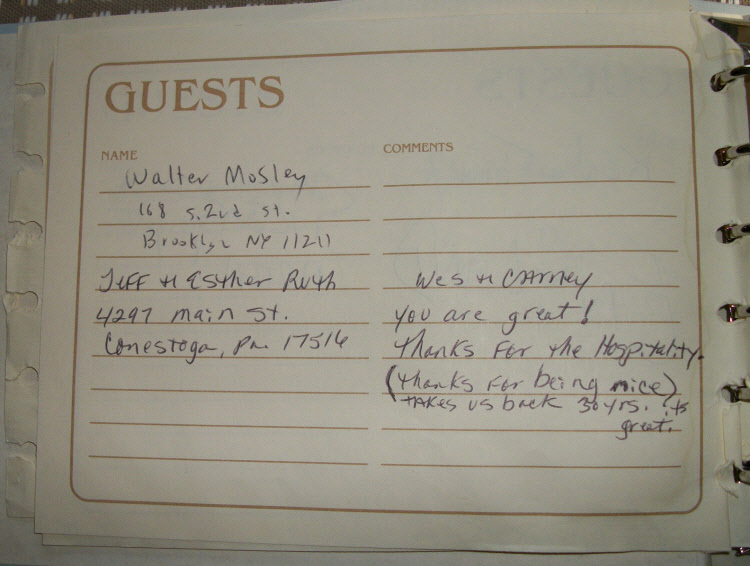 GUESTS
NAME
COMMENTS
Walter Mosley
168 S. 2nd St.
Brooklyn NY 11211
Jeff & Esther Ruth
4297 main St.
Conestoga, Pa. 17516
Wes & CArney
you are great!
Thanks For the Hospitality.
(thanks for being nice)
TAKes us back 30 yrs. its
great.